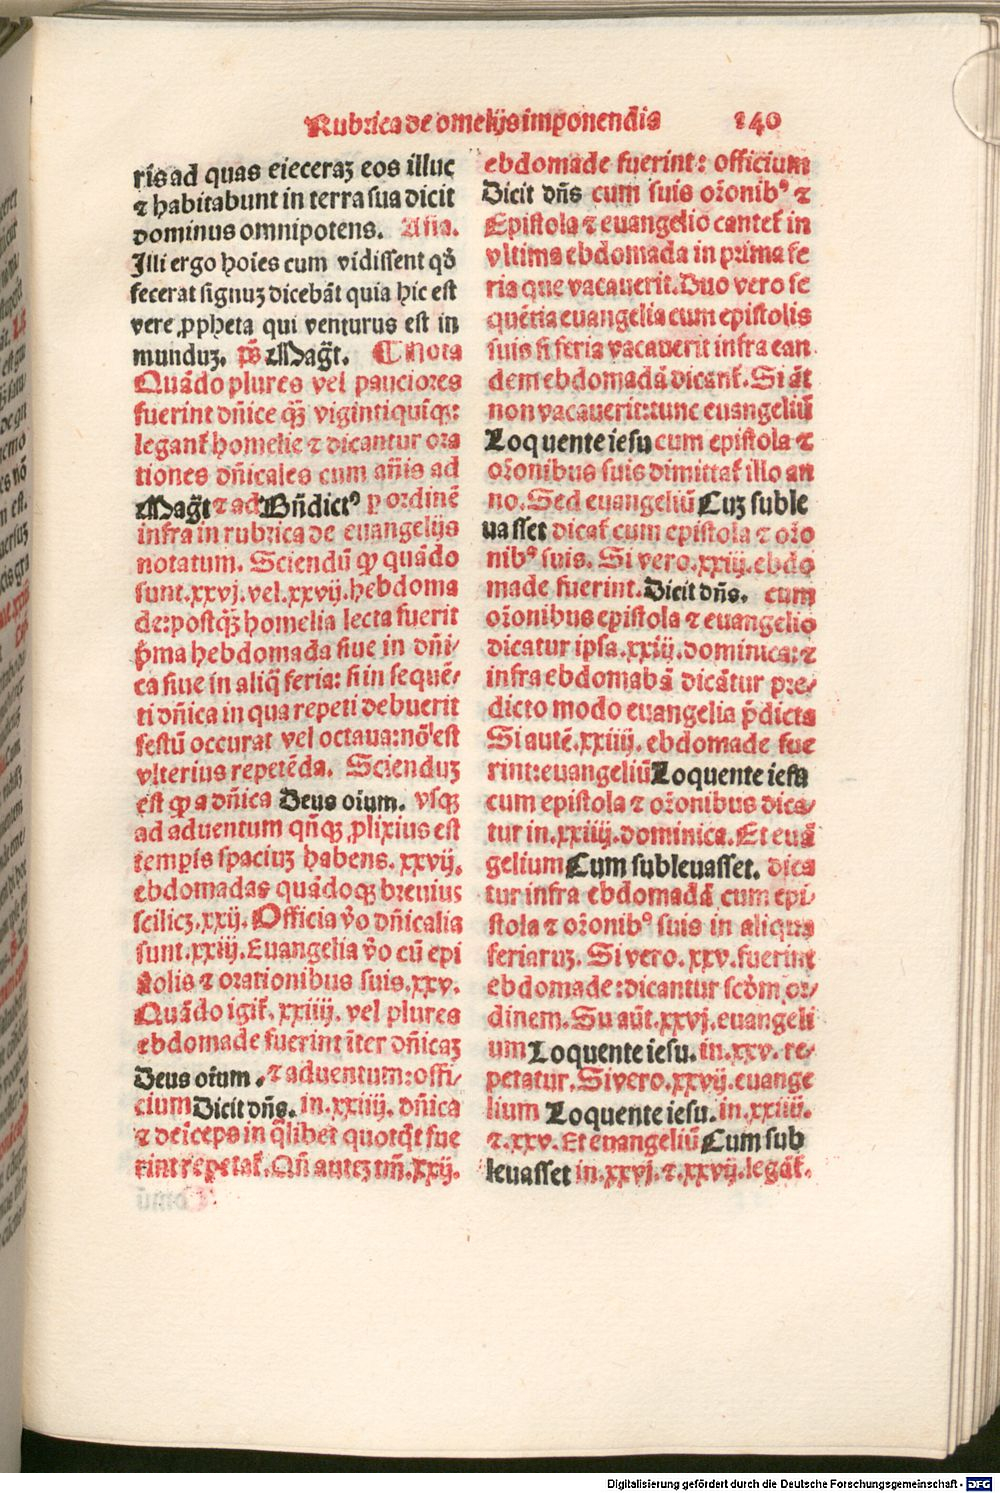 Rubrica de omelijs imponendis 140
ris ad quas eieceraꝫ eos illuc
⁊ habitabunt in terra sua dicit
dominus omnipotens. Aña.
Illi ergo hoīes cum vidissent qđ
fecerat signuꝫ dicebāt quia hic est
vere ꝓpheta qui venturus est in
munduꝫ. p̄s Magt̄. ¶ Nota
Quādo plures vel pauciores
fuerint dñice qꝫ̄ vigintiquīqꝫ:
legant̄ homelie ⁊ dicantur ora
tiones dñicales cum añis ad
Magt̄ ⁊ ad Bñdictꝰ ꝑ ordinē
infra in rubrica de euangelijs
notatum. Sciendū ꝙ quādo
sunt.xxvj.vel.xxvij.hebdoma
de:postqꝫ̄ homelia lecta fuerit
p̄ma hebdomada siue in dñi/
ca siue in aliq̄ feria: si in sequē/
ti dñica in qua repeti debuerit
festū occurat vel octaua:nō est
vlterius repetēda. Scienduꝫ
est ꝙ a dñica Deus oīum. vsqꝫ
ad aduentum qñqꝫ ꝓlixius est
temporis spaciuꝫ habens. xxvij.
ebdomadas quādoqꝫ breuius
scilicꝫ.xxij. Officia v̄o dñicalia
sunt.xxiij.Euangelia v̄o cū epi
stolis ⁊ orationibus suis.xxv.
Quādo igit̄. xxiiij. vel plures
ebdomade fuerint īter dñicaꝫ
Deus oīum. ⁊ aduentum: offi/
cium Dicit dñs. in.xxiiij. dñica
⁊ deīceps in q̄libet quotq̄t fue
rint repetat̄. Qñ auteꝫ tm̄.xxij.
ebdomade fuerint: officium
Dicit dñs cum suis or̄onibꝰ ⁊
Epistola ⁊ euangelio cantet̄ in
vltima ebdomada in prima fe
ria que vacauerit. Duo vero se
quētia euangelia cum epistolis
suis si feria vacauerit infra ean
dem ebdomadā dicant̄. Si āt
non vacauerit:tunc euangeliū
Loquente iesu cum epistola ⁊
or̄onibus suis dimittat̄ illo an
no. Sed euangeliū Cuꝫ suble
uasset dicat̄ cum epistola ⁊ or̄o
nibꝰ suis. Si vero.xxiij.ebdo
made fuerint. Dicit dñs. cum
or̄onibus epistola ⁊ euangelio
dicatur ipsa.xxiij.dominica:⁊
infra ebdomabā dicātur pre/
dicto modo euangelia p̄dicta
Si autē.xxiiij. ebdomade fue
rint:euangeliū Loquente iesu
cum epistola ⁊ or̄onibus dica/
tur in.xxiiij.dominica. Et euā
gelium Cum subleuasset. dica
tur infra ebdomadā cum epi/
stola ⁊ or̄onibꝰ suis in aliqua
feriaruꝫ. Si vero. xxv. fuerint
ebdomade:dicantur scd̄m or/
dinem. Su aūt.xxvj.euangeli
um Loquente iesu. in.xxv. re/
petatur. Si vero.xxvij.euange
lium Loquente iesu. in.xxiiij.
⁊.xxv. Et euangeliū Cum sub
leuasset in.xxvj.⁊.xxvij.legāt̄.
Digitalisierung gefördert durch die Deutsche Forschungsgemeinschaft - DFG